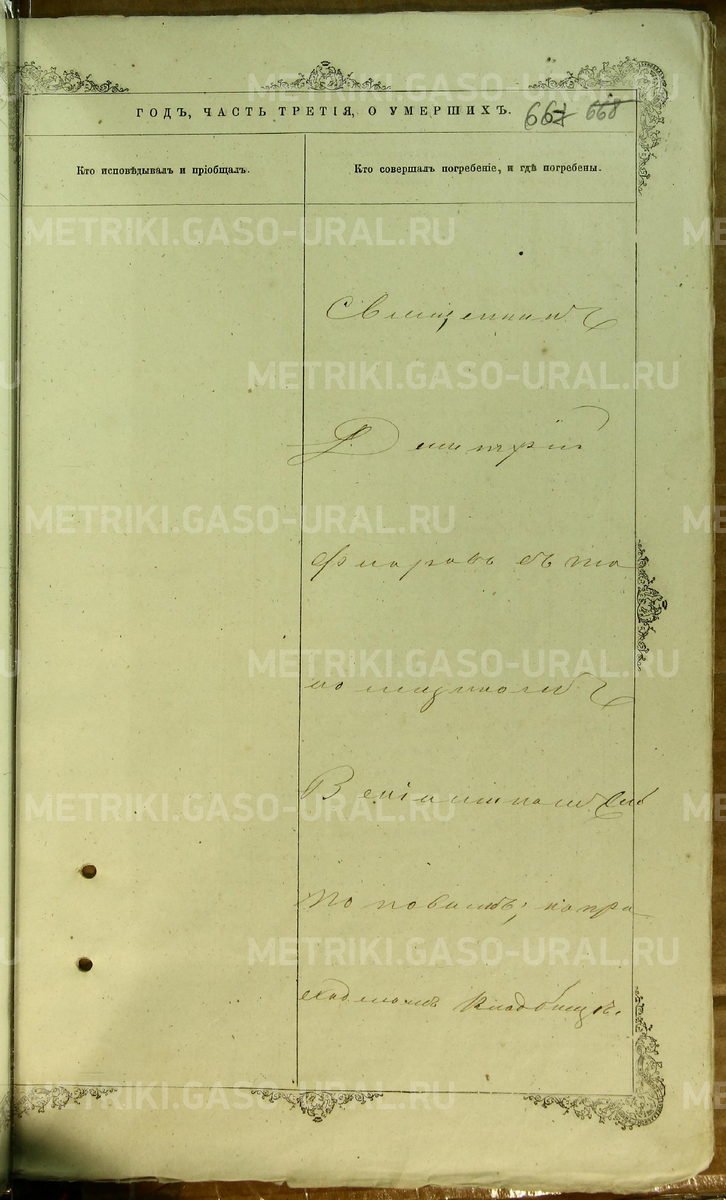 METRIKI.GASO-URAL.RU
ГОДЪ, ЧАСТЬ ТРЕТІЯ, О УМЕРШИХЪ.
667 668
Кто исповѣдывалъ и пріобщалъ.
Кто совершалъ погребеніе, и гдѣ погребены.
Священникъ
Димитрій
съ по
номаремъ
Поповымъ; на при
ходскомъ кладбищѣ.